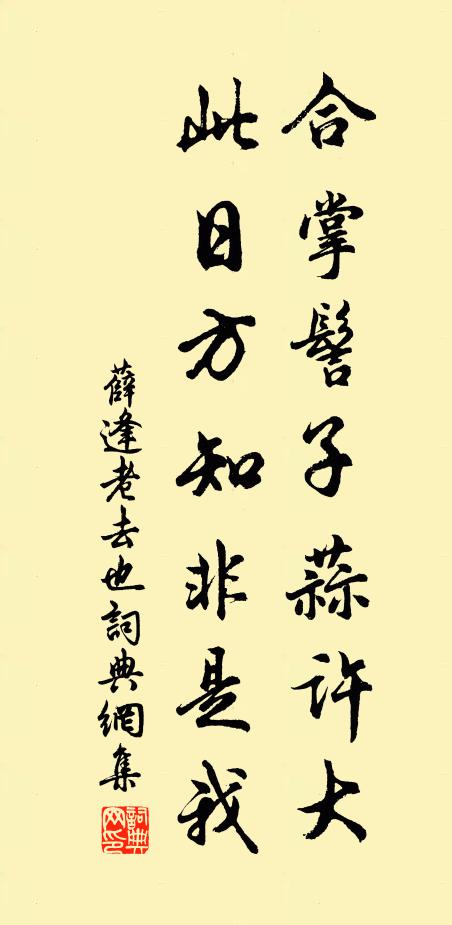 合掌髻子蒜許大
此日方知非是我
薛逢老去也詞典網集
詞典网印